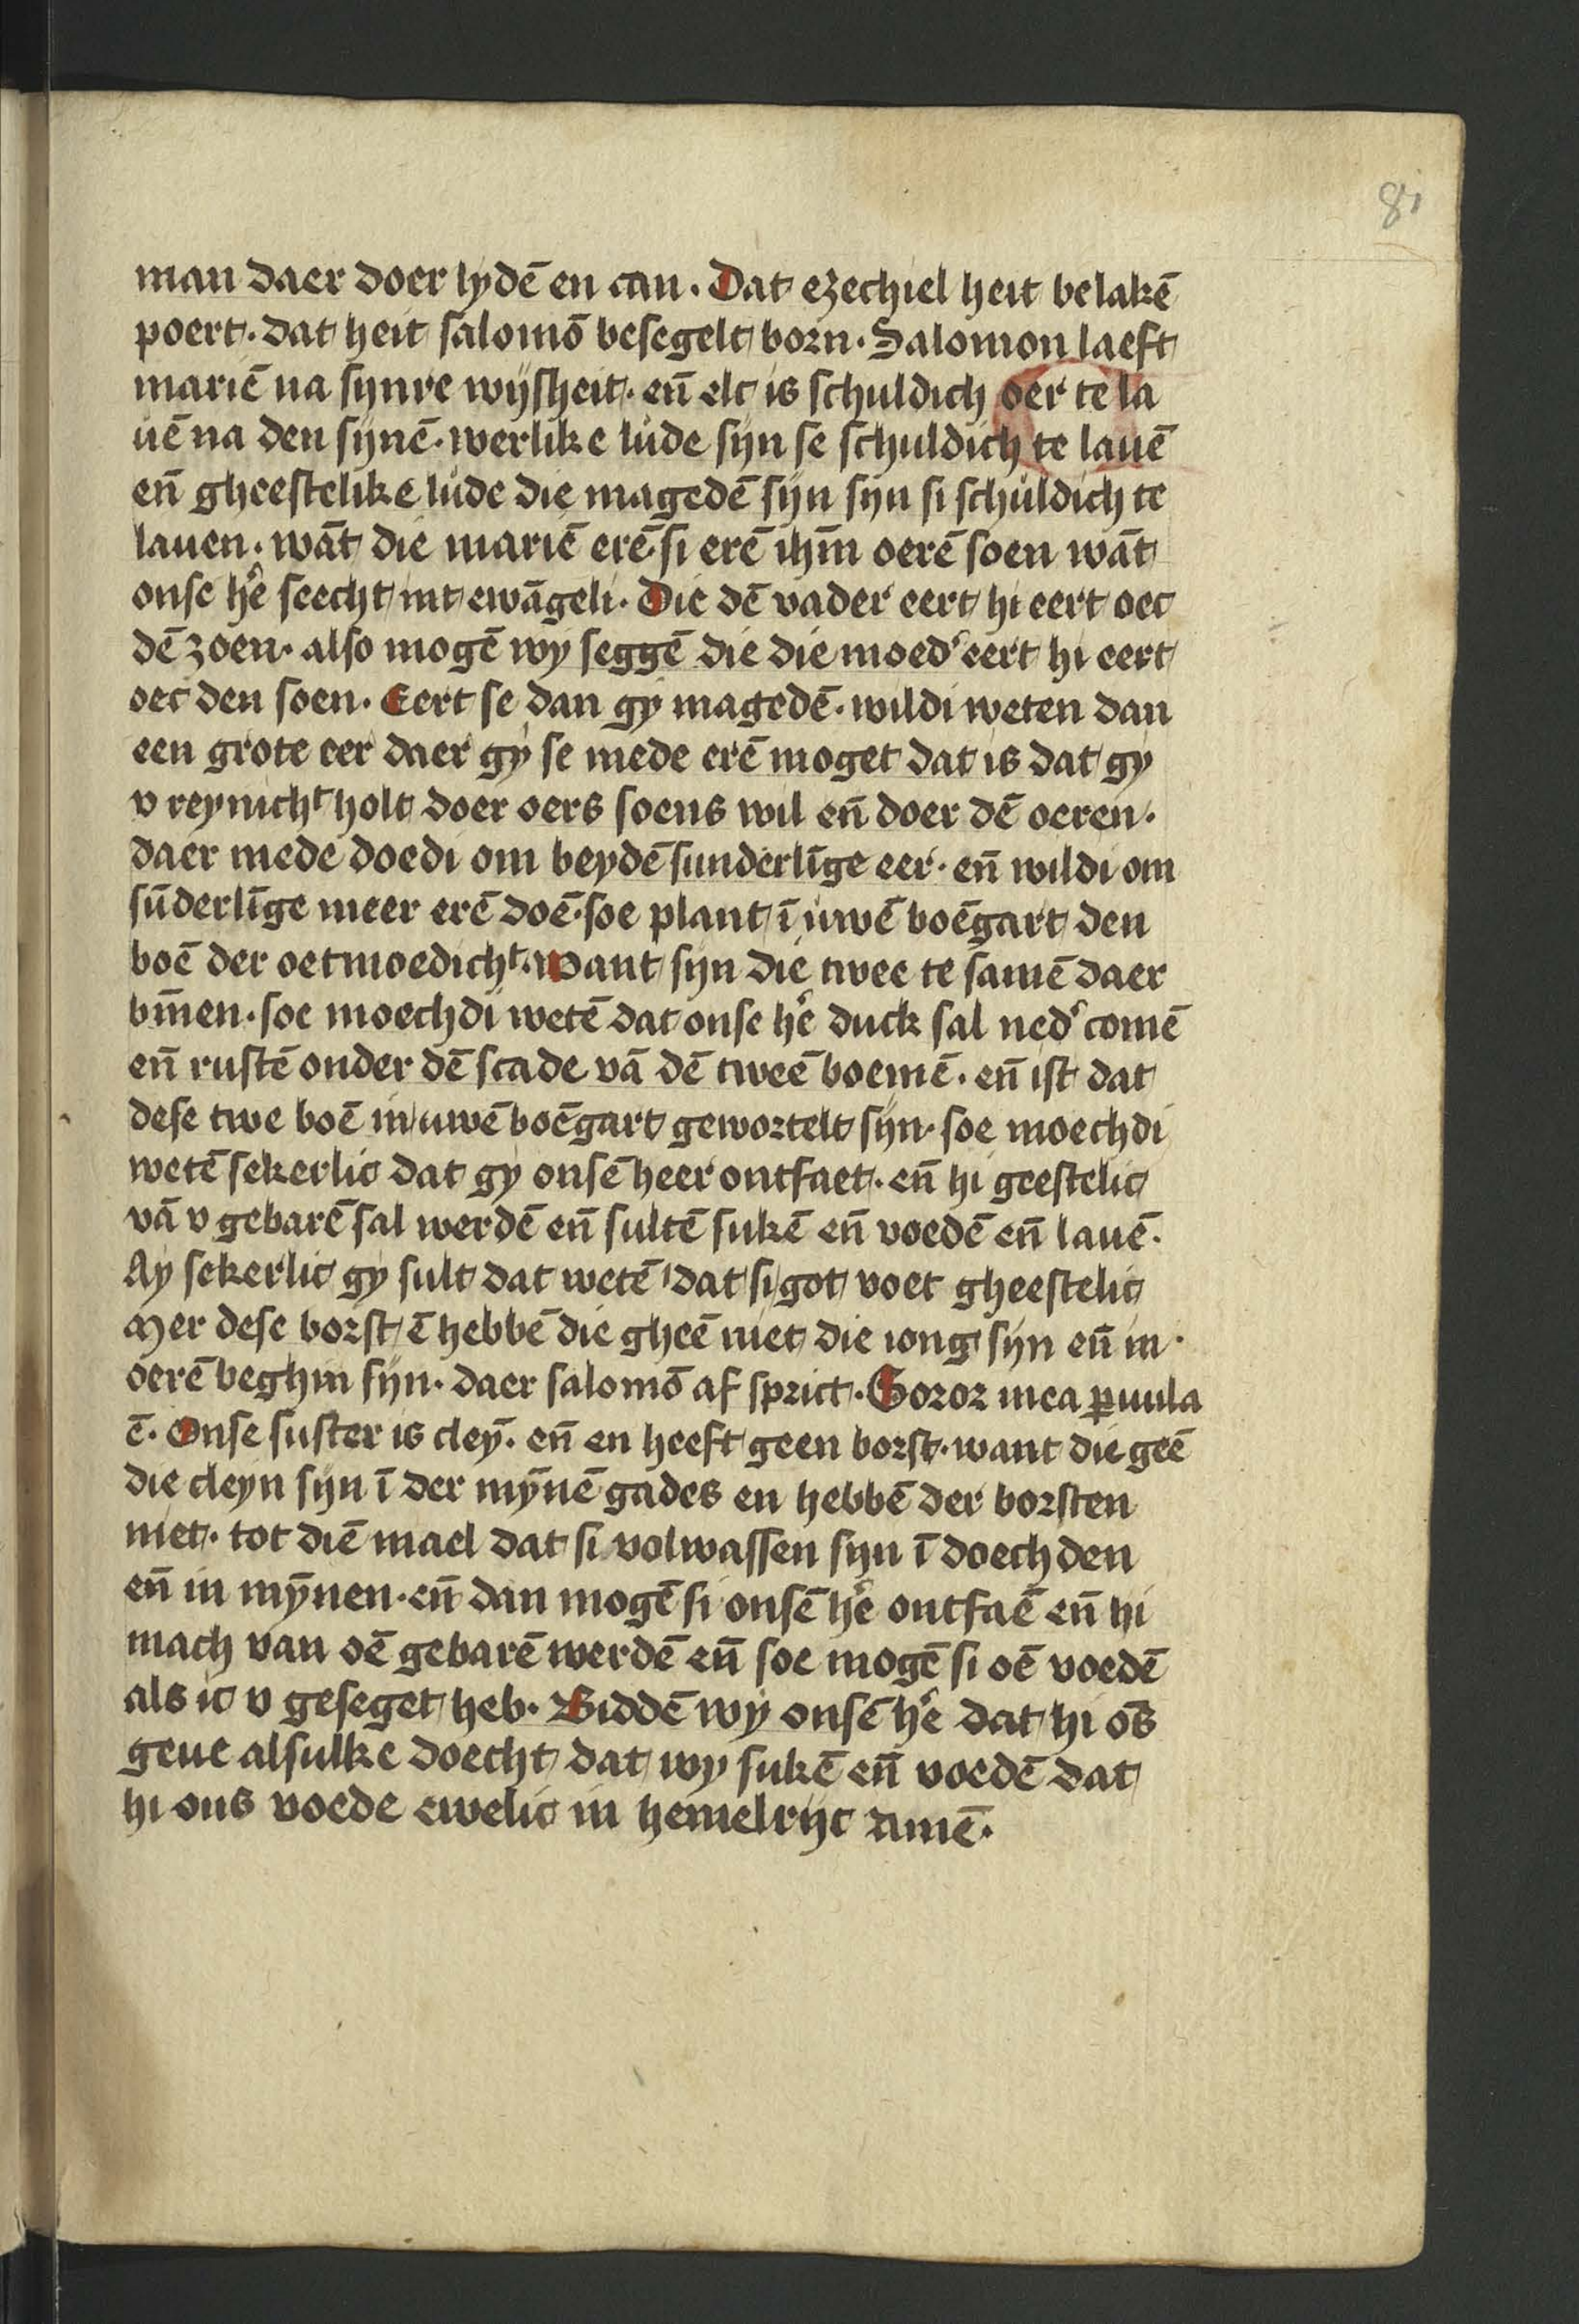 81
man daer doer lydē en can. Dat ezechiel heit belakē
poert. dat heit salomō besegelt born. Salomon laeft
mariē na synre wijsheit. en̄ elc is schuldich oer te la
uē na den sijnē. werlike lude sijn se schuldich te lauē
en̄ gheestelike lude die magedē sijn sijn si schuldich te
lauen. wāt die mariē erē. si erē ihm̄ oerē soen wāt
onse hē seecht int ewāgeli. Die dē vader eert hi eert oec
dē zoen. also mogē wy seggē die die moed' eert hi eert
oec den soen. Eert se dan gy magedē. wildi weten dan
een grote eer daer gy se mede erē moget dat is dat gy
v reynicht holt doer oers soens wil en̄ doer dē oeren.
daer mede doedi om beydē sunderlīge eer. en̄ wildi om
sūderlīge meer erē doē. soe plant ī uwē boēgart den
boē der oetmoedicht. want sijn die twee te samē daer
bīnen. soe moechdi wetē dat onse hē duck sal ned' comē
en̄ rustē onder dē scade vā dē tweē boemē. en̄ ist dat
dese twe boē in uwē boēgart gewortelt sijn. soe moechdi
wetē sekerlic dat gy onsē heer ontfaet. en̄ hi geestelic
vā v gebarē sal werdē en̄ sultē sukē en̄ voedē en̄ lauē.
Ay sekerlic gy sult dat wetē dat si got voet gheestelic
Mer dese borst ē hebbē die gheē niet die iong sijn en̄ in
oerē beghin sijn. daer salomō af sprict. Soror mea ꝑuula
ē. Onse suster is cleȳ. en̄ en heeft geen borst. want die geē
die cleyn sijn ī der mȳnē gades en hebbē der borsten
niet. tot diē mael dat si volwassen sijn ī doechden
en̄ in mȳnen. en̄ dan mogē si onsē hē ontfaē en̄ hi
mach van oē gebarē werdē en̄ soe mogē si oē voedē
als ic v geseget heb. Biddē wy onsē hē dat hi os̄
geue alsulke doecht dat wy sukē en̄ voedē dat
hi ons voede ewelic in hemelrijc Amē.